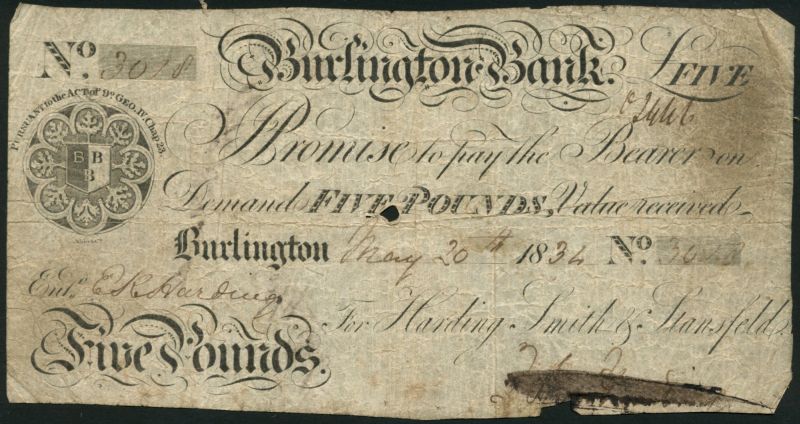 No. 3018
Burlington Bank.
£FIVE
PURSUANT to the ACT of 9º GEO. IV Chap 23.
B B
B
I Promise to pay the Bearer on
Demand FIVE POUNDS, Value received
Burlington May 20th 1834 No. 3018
Entd. E K Harding
For Harding, Smith & Stansfeld.
Five Pounds.